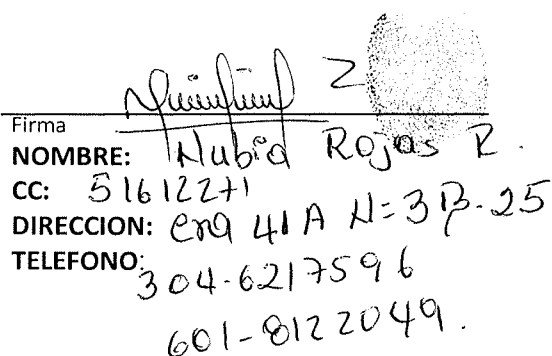 Firma
NOMBRE: Nubia Rojas R.
CC: 51612271
DIRECCION: cra 41A N=3B-25
TELEFONO: 304-6217596
601-8122049.